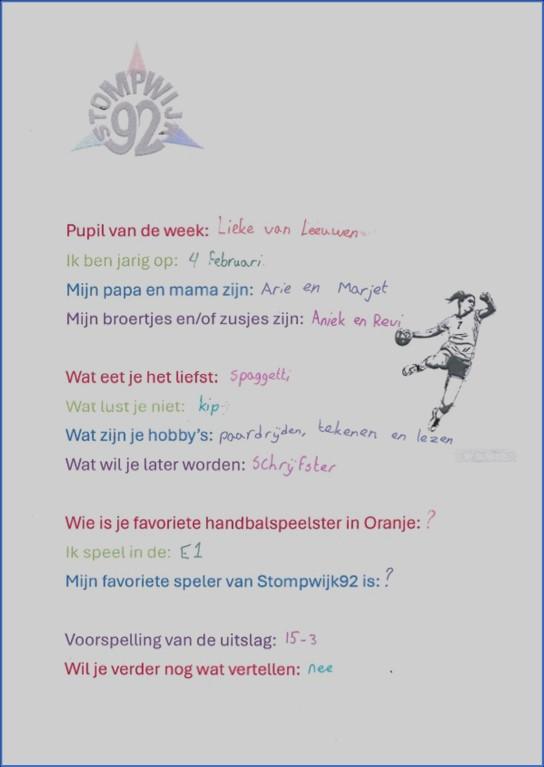 STOMPWIJK
92
Pupil van de week: Lieke van Leeuwen
Ik ben jarig op: 4 februari
Mijn papa en mama zijn: Arie en Marjet
Mijn broertjes en/of zusjes zijn: Aniek en Revi
7
Wat eet je het liefst: spaggetti
Wat lust je niet: kip
Wat zijn je hobby's: paardrijden, tekenen en lezen
Wat wil je later worden: Schrijfster
Wie is je favoriete handbalspeelster in Oranje: ?
Ik speel in de: E1
Mijn favoriete speler van Stompwijk92 is: ?
Voorspelling van de uitslag: 15-3
Wil je verder nog wat vertellen: nee